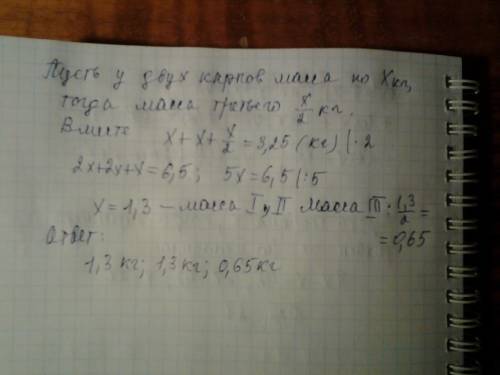 Пусть у двух карпов масса по X кг,
тогда масса третьего x/2 кг.
Вместе x + x + x/2 = 3,25 (кг) | · 2
2x+2x+x=6,5; 5x=6,5 |:5
x = 1,3 – масса I и II Масса III: 1,3/2 =
= 0,65
Ответ:
1,3 кг; 1,3 кг; 0,65 кг